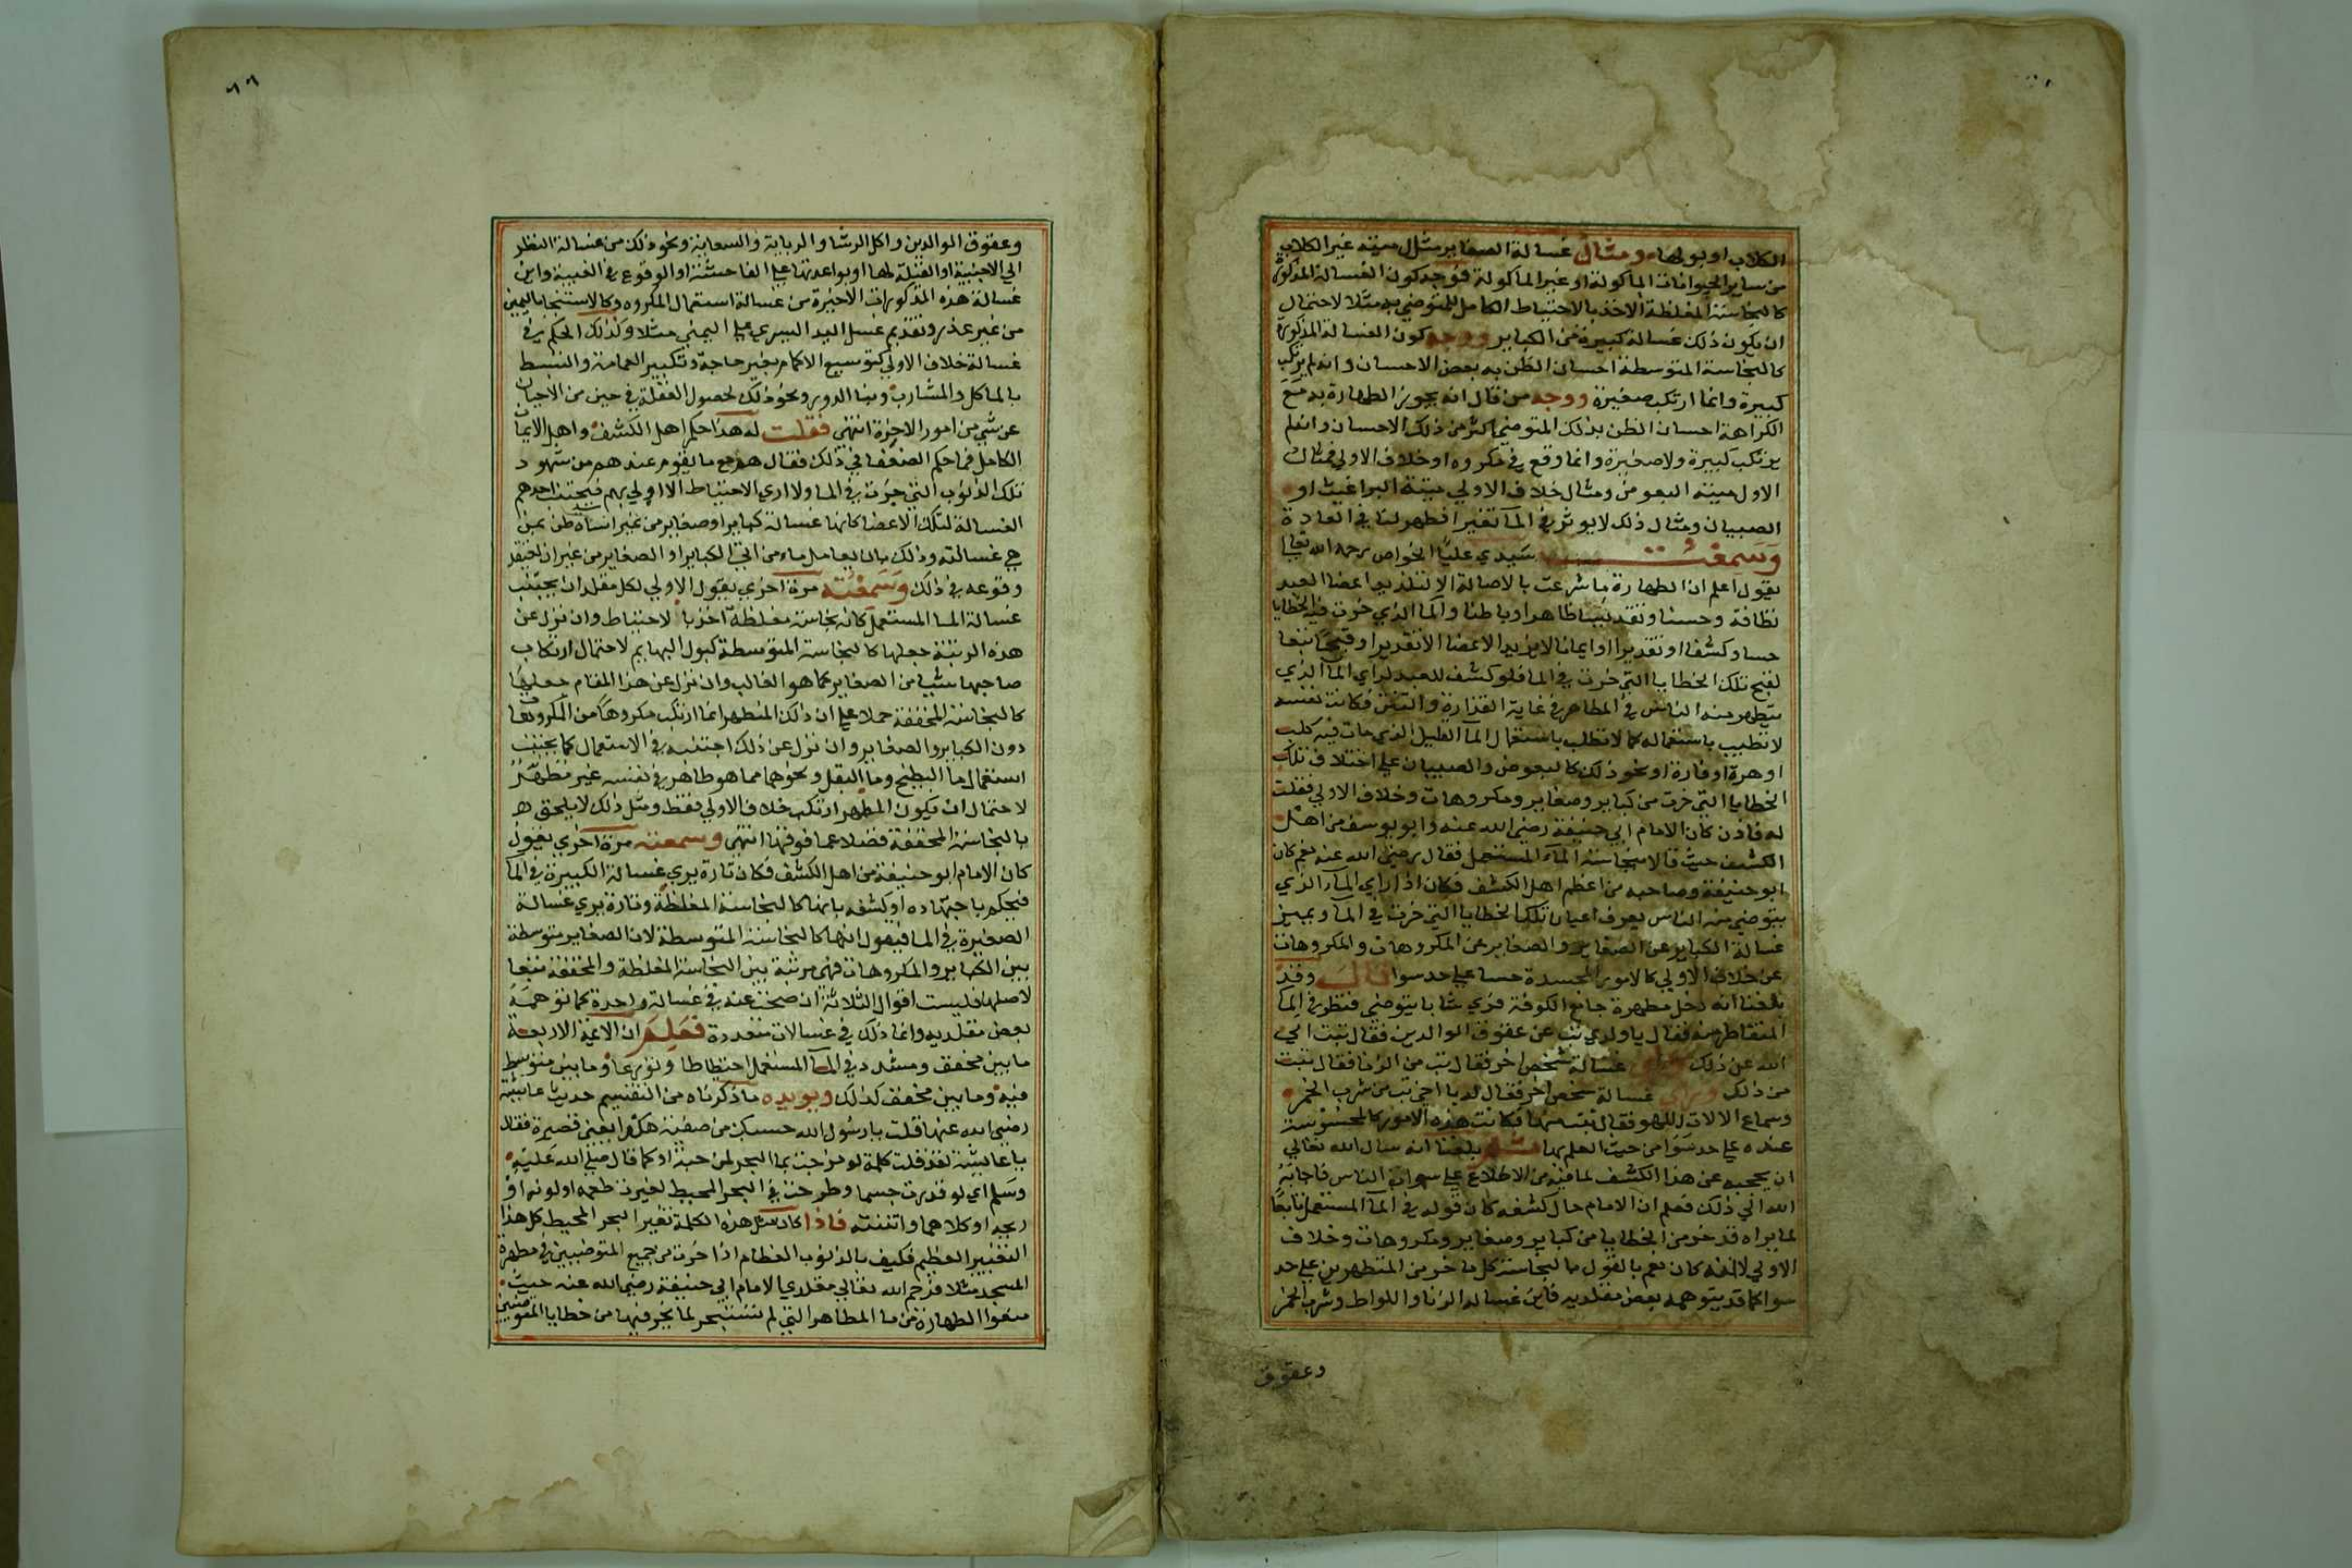 الكلاب او بولها ومثال غسالة الصغاير مثل ميتة غير الكلاب
من ساير الحيوانات الماكولة او غير الماكولة فوجه كون الغسالة المذكورة
كالنجاسة المغلظة الاخذ بالاحتياط الكامل للمتوضي به مثلا لاحتمال
ان يكون ذلك غسالة كبيرة من الكباير ووجه كون الغسالة المذكورة
كالنجاسة المتوسطة احسان الظن به بعض الاحسان وانه لم يرتكب
كبيرة وانما ارتكب صغيرة ووجه من قال انه يجوز الطهارة به مع
الكراهة احسان الظن بذلك المتوضي اكثر من ذلك الاحسان وانه لم
يرتكب كبيرة ولا صغيرة وانما وقع في مكروه او خلاف الاولي فمثال
الاول ميتة البعوض ومثال خلاف الاولي ميتة البراغيث او
الصيبان ومثال ذلك لا يوثر في الما تغيرا نظهر لنا في العادة
وسمعت سيدي عليا الخواص رحمه الله تعالي
يقول اعلم ان الطهارة ما شرعت بالاصالة الا لتزيد اعضا العبد
نظافة وحسنا وتقديسا ظاهرا وباطنا والما الذي خرت فيه الخطايا
حسا وكشفا او تقديرا او ايمانا لا يزيد الاعضا الا تقذيرا وقبحا تبعا
لقبح تلك الخطايا التي خرت في الما فلو كشف للعبد لراي الما الذي
يتطهر منه الناس في المطاهر في غاية القذارة والنتن فكانت نفسه
لا تطيب باستعماله كما لا تطلب باستعمال الما القليل الذي مات فيه كلب
او هرة او فارة او نحو ذلك كالبعوض والصيبان علي اختلاف تلك
الخطايا التي خرت من كباير وصغاير ومكروهات وخلاف الاولي فقلت
له فاذن كان الامام ابي حنيفة رضي الله عنه وابو يوسف من اهل
الكشف حيث قالا بنجاسة الماء المستعمل فقال رضي الله عنه نعم كان
ابو حنيفة وصاحبه من اعظم اهل الكشف فكان اذا راي الماء الذي
يتوضي منه الناس يعرف اعيان تلك الخطايا التي خرت في الما ويميز
غسالة الكباير عن الصغاير والصغاير عن المكروهات والمكروهات
عن خلاف الاولي كالامور المجسدة حسا علي حد سوا قال وقد
بلغنا انه دخل مطهرة جامع الكوفة فراي شابا يتوضي فنظر في الما
المتقاطر منه فقال يا ولدي تب عن عقوق الوالدين فقال تبت الي
الله عن ذلك وراي غسالة شخص اخر فقال تب من الزنا فقال تبت
من ذلك وراي غسالة شخص اخر فقال له يا اخي تب من شرب الخمر
وسماع الالات للهو فقال تبت منها فكانت هذه الامور كالمحسوسة
عنده علي حد سوا من حيث العلم بها ثم بلغنا انه سال الله تعالي
ان يحجبه عن هذا الكشف لما فيه من الاطلاع علي سوات الناس فاجابه
الله الي ذلك فعلم ان الامام حال كشفه كان قوله في الما المستعمل تابعا
لما يراه قد خر من الخطايا من كباير وصغاير ومكروهات وخلاف
الاولي لا انه كان يعم بالقول بالنجاسة كل ما خر من المتطهرين علي حد
سوا كما قد يتوهمه بعض مقلديه فاين غسالة الزنا واللواط وشرب الخمر
وعقوق
٦٦
وعقوق الوالدين واكل الرشا والربابة والسعاية ونحو ذلك من غسالة النظر
الي الاجنبية او القبلة لها او بواعدتها علي الفاحشة او الوقوع في الغيبة واين
غسالة هذه المذكورات الاخيرة من غسالة استعمال المكروه وكالاستنجا باليمين
من غير عذر وتقديم غسل اليد اليسري علي اليمني مثلا وكذلك الحكم في
غسالة خلاف الاولي كتوسيع الاكمام بغير حاجة وتكبير العمامة والتبسط
بالماكل والمشارب وبنا الدور ونحو ذلك لحصول الغفلة في حين من الاحيان
عن شي من امور الاخرة انتهي فقلت له هذا حكم اهل الكشف واهل الايمان
الكامل فما حكم الضعفا في ذلك فقال هو مع ما يقوم عندهم من شهود
تلك الذنوب التي خرت في الما ولا اري الاحتياط الا اولي بهم فيجتنب احدهم
الغسالة لتلك الاعضا كانها غسالة كباير او صغاير من غير اساة ظن بمن
هي غسالته وذلك بان يعامل ماء من اتي الكباير او الصغاير من غير ان يعتقد
وقوعه في ذلك وسمعته مرة اخري يقول الاولي لكل مقلد ان يجتنب
غسالة الما المستعمل كانه نجاسة مغلظة اخذ بالاحتياط وان نزل عن
هذه الرتبة جعلها كالنجاسة المتوسطة كبول البهايم لاحتمال ارتكاب
صاحبها شيا من الصغاير كما هو الغالب وان نزل عن هذا المقام جعلها
كالنجاسة المخففة حملا علي ان ذلك المتطهر انما ارتكب مكروها من المكروهات
دون الكباير والصغاير وان نزل عن ذلك اجتنبه في الاستعمال كما يجتنب
استعمال ما البطيخ وما البقل ونحوهما مما هو طاهر في نفسه غير مطهر
لاحتمال ان يكون المطهر ارتكب خلاف الاولي فقط ومثل ذلك لا يلحق
بالنجاسة المخففة فضلا عما فوقها انتهي وسمعته مرة اخري يقول
كان الامام ابو حنيفة من اهل الكشف فكان تارة يري غسالة الكبيرة في الما
فيحكم باجتهاده او كشفه بانها كالنجاسة المغلظة وتارة يري غسالة
الصغيرة في الما فيقول انها كالنجاسة المتوسطة لان الصغاير متوسطة
بين الكباير والمكروهات فهي مرتبة بين النجاسة المغلظة والمخففة تبعا
لاصلها فليست اقوال الثلاثة ان صحت عنه في غسالة واحدة كما توهمه
بعض مقلديه وانما ذلك في غسالات متعددة فعلم ان الايمة الاربعة
ما بين مخفف ومشدد في الما المستعمل احتياطا وتورعا وما بين متوسط
فيه وما بين مخفف كذلك ويويده ما ذكرناه من التقسيم حديث عايشة
رضي الله عنها قلت يا رسول الله حسبك من صفية هكذا يعني قصيرة فقال
يا عايشة لقد قلت كلمة لو مزجت بما البحر لمزجته او كما قال صلي الله عليه
وسلم اي لو قدرت جسما وطرحت في البحر المحيط لغيرت طعمه او لونه او
ريحه او كلاهما وانتنته فاذا كان مثل هذه الكلمة تغير البحر المحيط كل هذا
التغيير العظيم فكيف بالذنوب العظام اذا خرت من جميع المتوضيين في مطهرة
المسجد مثلا فرحم الله تعالي مقلدي الامام ابي حنيفة رضي الله عنه حيث
منعوا الطهارة من ما المطاهر التي لم تستبحر لما يخر فيها من خطايا المتوضيين